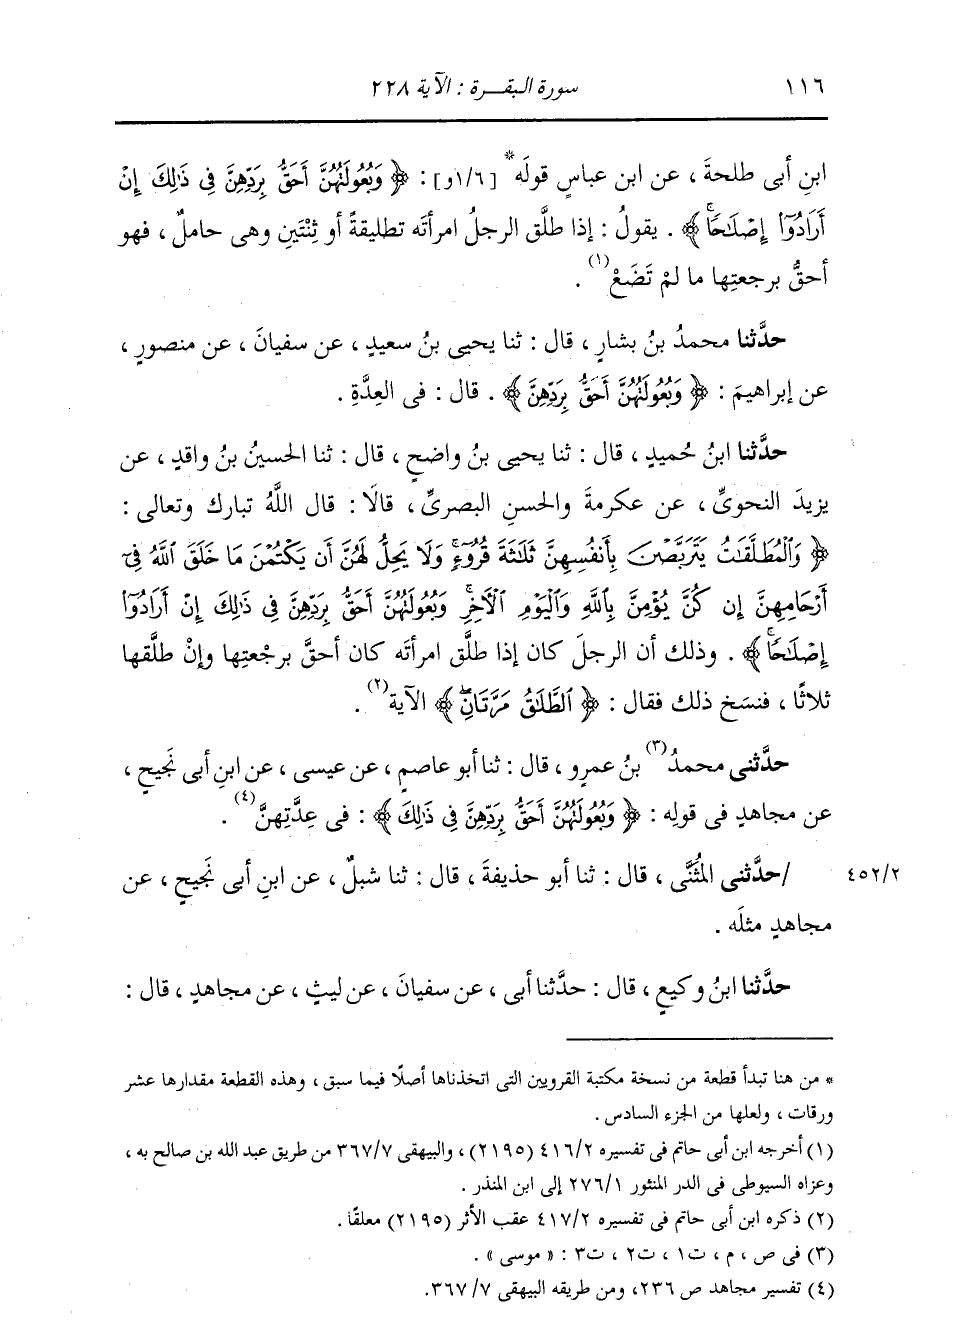 ١١٦ سورة البقرة : الآية ٢٢٨
ابنِ أبى طلحةَ ، عن ابن عباسٍ قولَه* [١/٦و] : ﴿ وَبُعُولَتُهُنَّ أَحَقُّ بِرَدِّهِنَّ فِي ذَٰلِكَ إِنْ
أَرَادُوٓا۟ إِصْلَـٰحًا ۚ ﴾ . يقولُ : إذا طلَّق الرجلُ امرأتَه تطليقةً أو ثِنْتَينِ وهى حاملٌ ، فهو
أحقُّ برجعتِها ما لمْ تَضَعْ(١) .
حدَّثنا محمدُ بنُ بشارٍ ، قال : ثنا يحيى بنُ سعيدٍ ، عن سفيانَ ، عن منصورٍ ،
عن إبراهيمَ : ﴿ وَبُعُولَتُهُنَّ أَحَقُّ بِرَدِّهِنَّ ﴾ . قال : فى العِدَّةِ .
حدَّثنا ابنُ حُميدٍ ، قال : ثنا يحيى بنُ واضحٍ ، قال : ثنا الحسينُ بنُ واقدٍ ، عن
يزيدَ النحوىِّ ، عن عكرمةَ والحسنِ البصرىِّ ، قالَا : قال اللَّهُ تبارك وتعالى :
﴿ وَٱلْمُطَلَّقَـٰتُ يَتَرَبَّصْنَ بِأَنفُسِهِنَّ ثَلَـٰثَةَ قُرُوٓءٍ ۚ وَلَا يَحِلُّ لَهُنَّ أَن يَكْتُمْنَ مَا خَلَقَ ٱللَّهُ فِىٓ
أَرْحَامِهِنَّ إِن كُنَّ يُؤْمِنَّ بِٱللَّهِ وَٱلْيَوْمِ ٱلْآخِرِ ۚ وَبُعُولَتُهُنَّ أَحَقُّ بِرَدِّهِنَّ فِي ذَٰلِكَ إِنْ أَرَادُوٓا۟
إِصْلَـٰحًا ۚ ﴾ . وذلك أن الرجلَ كان إذا طلَّق امرأتَه كان أحقَّ برجْعتِها وإنْ طلَّقها
ثلاثًا ، فنسَخ ذلك فقال : ﴿ ٱلطَّلَـٰقُ مَرَّتَانِ ۖ ﴾ الآية(٢) .
حدَّثنى محمدُ(٣) بنُ عمرٍو ، قال : ثنا أبو عاصمٍ ، عن عيسى ، عن ابنِ أبى نَجيحٍ ،
عن مجاهدٍ فى قولِه : ﴿ وَبُعُولَتُهُنَّ أَحَقُّ بِرَدِّهِنَّ فِي ذَٰلِكَ ﴾ : فى عِدَّتِهنَّ(٤) .
٤٥٢/٢ /حدَّثنى المُثنَّى ، قال : ثنا أبو حذيفةَ ، قال : ثنا شبلٌ ، عن ابنِ أبى نَجيحٍ ، عن
مجاهدٍ مثلَه .
حدَّثنا ابنُ وكيعٍ ، قال : حدَّثنا أبى ، عن سفيانَ ، عن ليثٍ ، عن مجاهدٍ ، قال :
* من هنا تبدأ قطعة من نسخة مكتبة القرويين التى اتخذناها أصلًا فيما سبق ، وهذه القطعة مقدارها عشر
ورقات ، ولعلها من الجزء السادس .
(١) أخرجه ابن أبى حاتم فى تفسيره ٤١٦/٢ (٢١٩٥) ، والبيهقى ٣٦٧/٧ من طريق عبد الله بن صالح به ،
وعزاه السيوطى فى الدر المنثور ٢٧٦/١ إلى ابن المنذر .
(٢) ذكره ابن أبى حاتم فى تفسيره ٤١٧/٢ عقب الأثر (٢١٩٥) معلقًا .
(٣) فى ص ، م ، ت١ ، ت٢ ، ت٣ : « موسى » .
(٤) تفسير مجاهد ص ٢٣٦، ومن طريقه البيهقى ٣٦٧/٧.